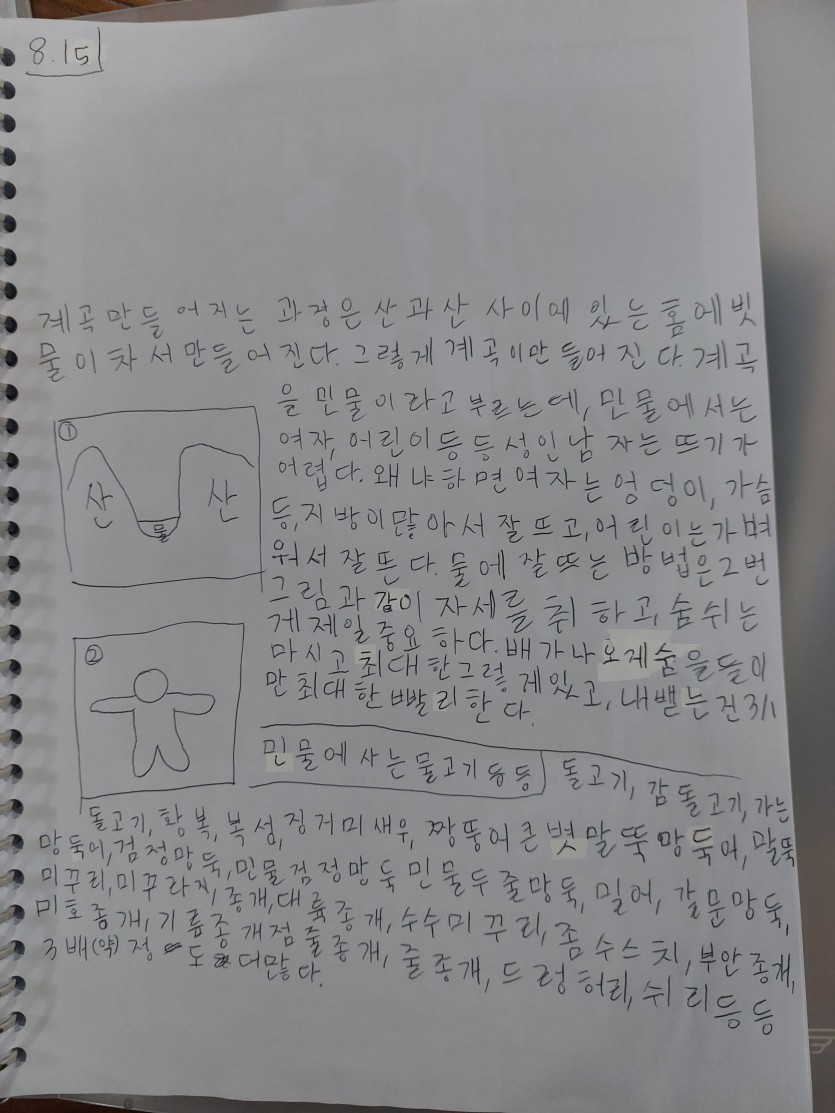 8.15
계곡만들어지는 과정은 산과산 사이에 있는 홈에빗
물이차서만들어진다. 그렇게 계곡이만들어진다. 계곡
을 민물이라고부르는데, 민물에서는
여자, 어린이등등성인남자는 뜨기가
어렵다. 왜냐하면여자는 엉덩이, 가슴
등, 지방이많아서 잘뜨고, 어린이는가벼
워서 잘뜬다. 물에 잘뜨는 방법은2번
그림과같이 자세를 취하고, 숨쉬는
게 제일중요하다. 배가나오게숨을들이
마시고최대한그렇게있고, 내뱉는건3/1
만최대한빨리한다.
①
산
산
물
②
민물에 사는물고기등등
돌고기, 감돌고기, 가는
돌고기, 황복, 복섬, 징거미새우, 짱뚱어큰볏말뚝망둑어, 말뚝
망둑어, 검정망둑, 민물검정망둑 민물두줄망둑, 밀어, 갈문망둑,
미꾸리, 미꾸라지, 종개, 대륙종개, 수수미꾸리, 좀수수치, 부안종개,
미호종개, 기름종개점줄종개, 줄종개, 드렁허리, 쉬리등등
3배(약)정도더많다.